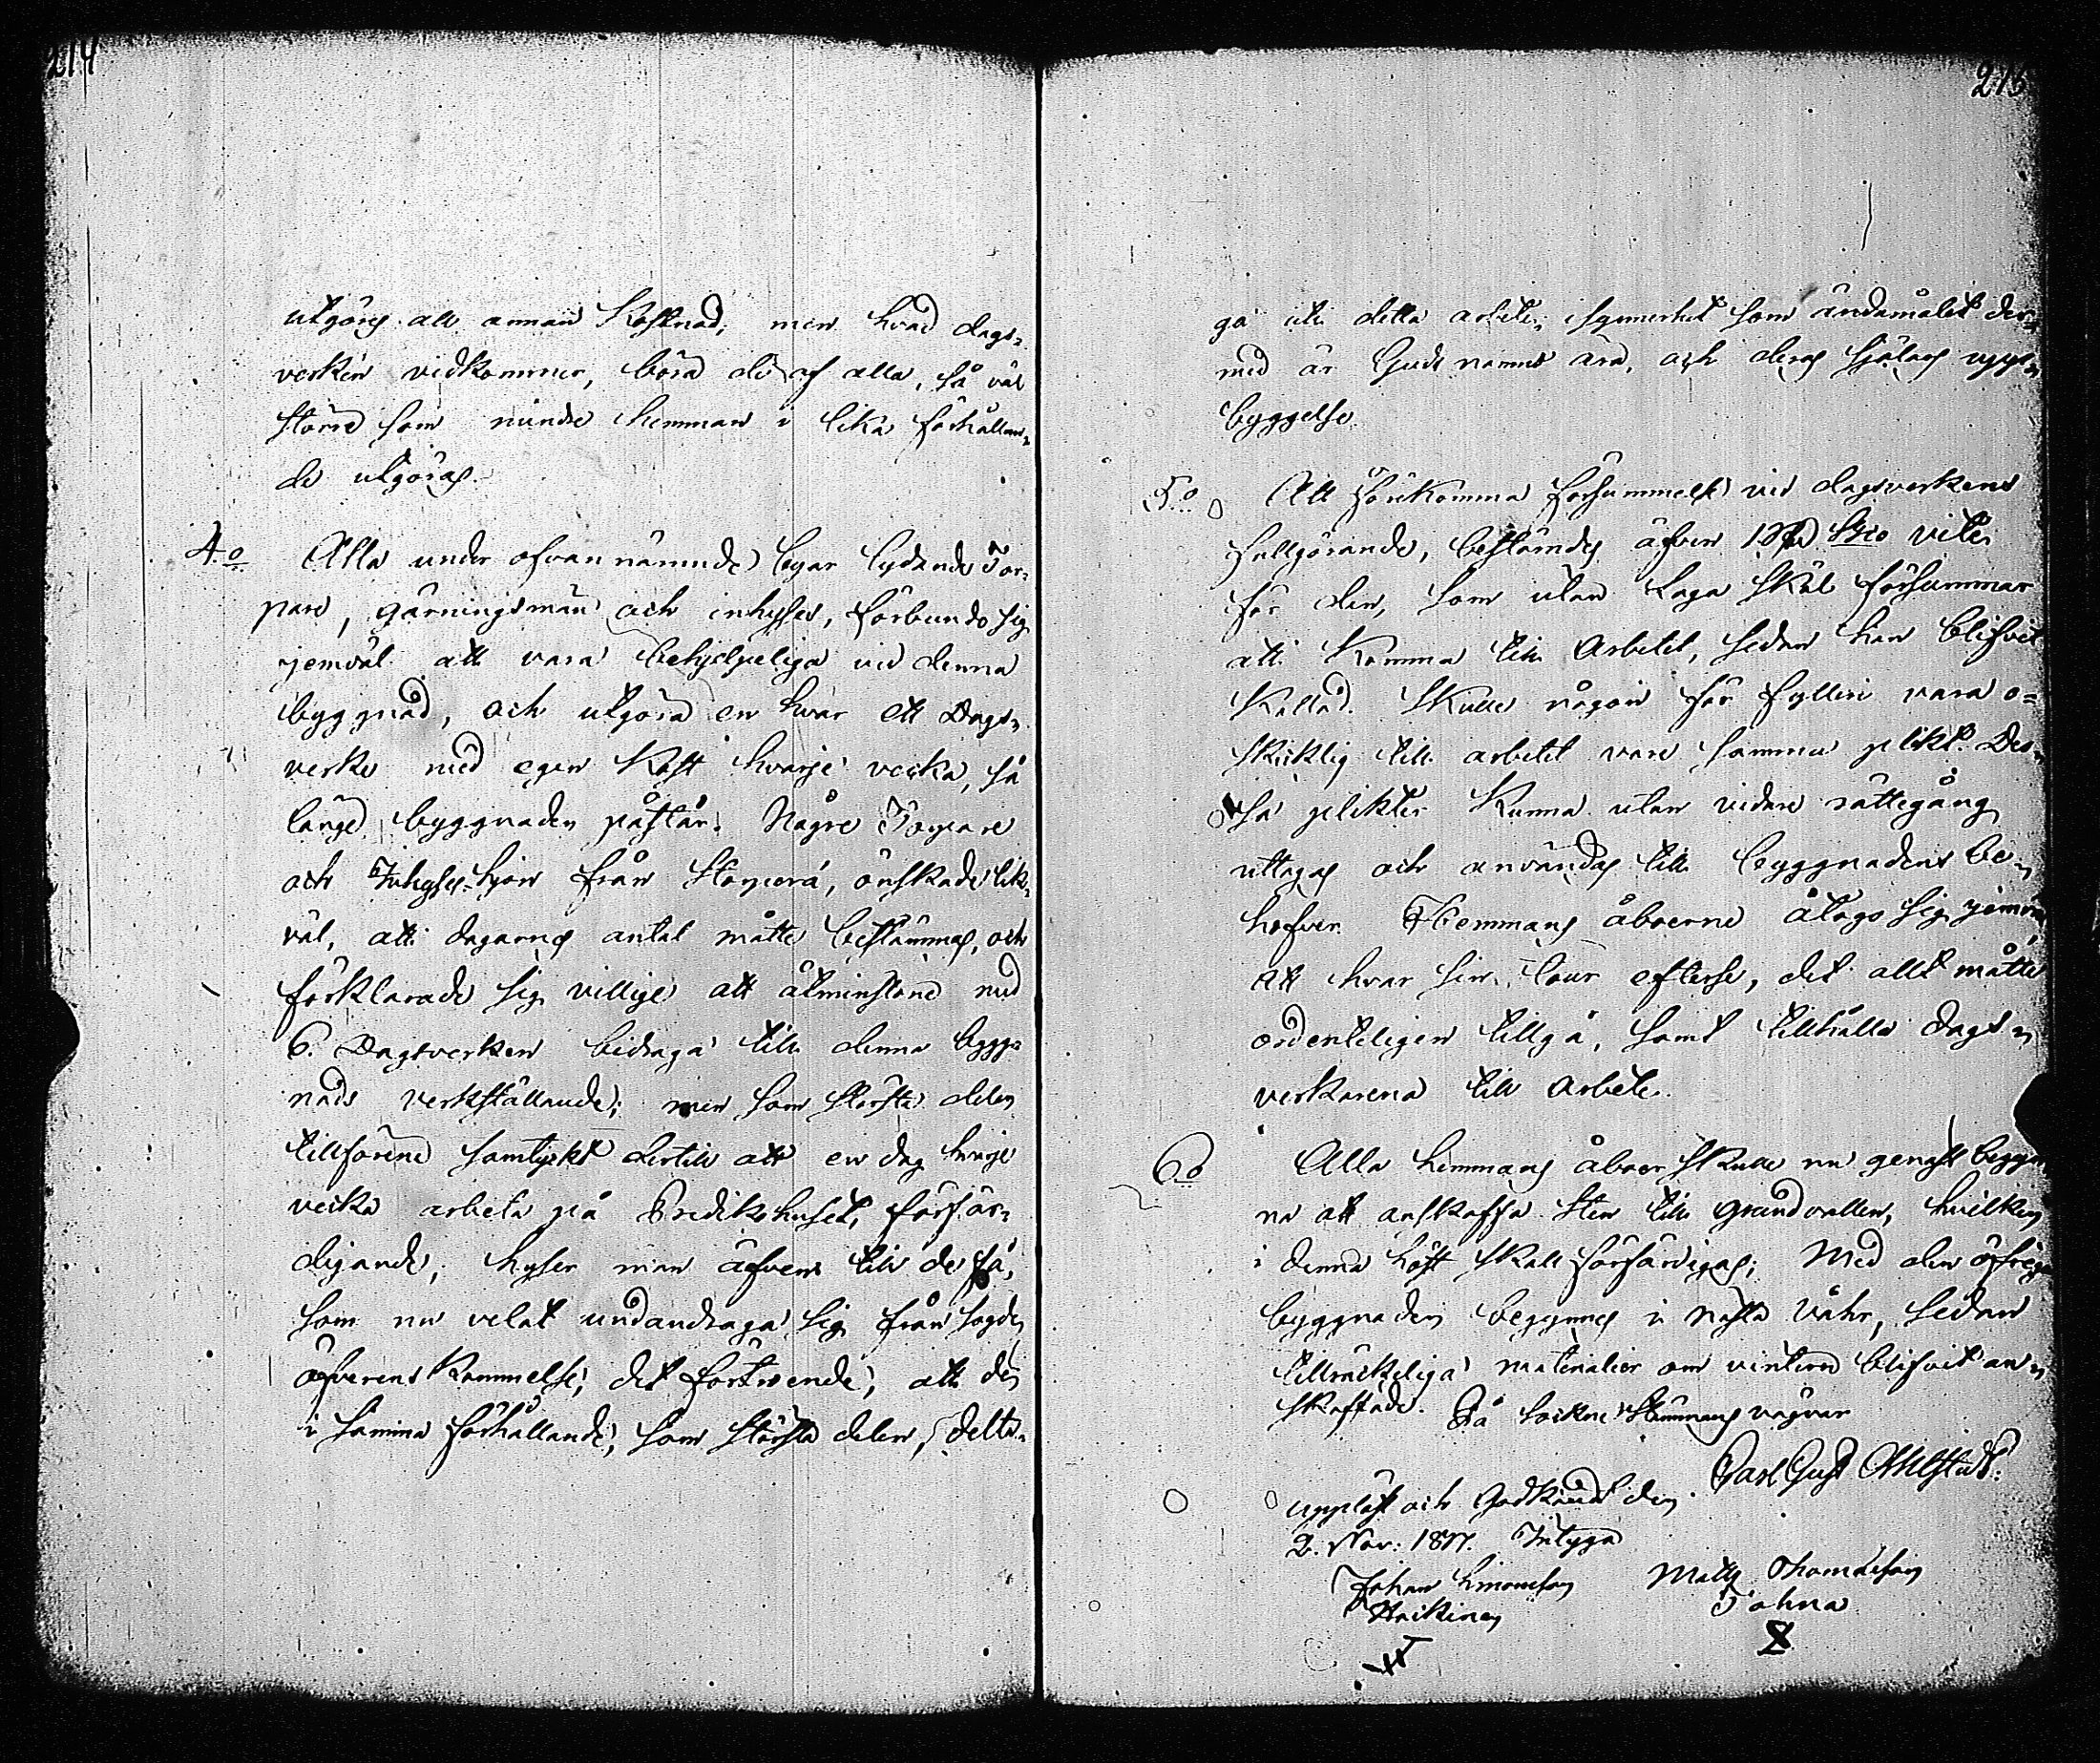 214
utgörs all annan Kostnad; men hvad dags-
verken vidkommer, böra de af alla, så väl
större som mindre hemman i lika förhållan-
de utgöras.
4:o Alla under ofvannämnde byar lydande Tor-
pare, gärningsmän och inhyses, förbundo sig
jemväl att vara behjelpeliga vid denna
byggnad, och utgöra en hvar ett Dags-
verke med egen Kost hvarje vecka, så
länge byggnaden påstår. Någre Torpare
och Inhyses-hjon från Storperä, önskade lik-
väl, att dagarnes antal måtte bestämmas, och
förklarade sig villige att åtminstone med
6. Dagsverken bidraga till denna bygg-
nads verkställande; men som största delen
tillförene samtyckt dertill att en dag hvarje
vecka arbeta på Predikohusets förfär-
digande, hyser man äfven till de få,
som nu velat undandraga sig från sagde
öfverenskommelse, det förtroende, att de
i samma förhållande, som största delen, delta-
215
ga uti detta arbete, isynnerhet som ändamålet der-
med är Guds namns ära, och deras själars upp-
byggelse.
5:o Att förekomma försummelse vid dagsverkens
fullgörande, bestämdes äfven vite
för den, som utan Laga skäl försummar
att Komma till Arbetet, sedan han blifvit
Kallad. Skulle någon för fylleri vara o-
skicklig till arbetet vare samma plikt. Des-
sa plikter Kunna utan vidare rättegång
uttagas och användas till byggnadens be-
hofver. Hemmans åboerne åtogo sig jemväl
att hvar sin tour efterse, det allt måtte
ordenteligen tillgå, samt tillhålla Dags-
verkarena till Arbete.
6:o Alla hemmans åboer skulle nu genast begyn-
na att anskaffa sten till grundvallen, hvilken
i denna höst skall förfärdigas; Med den öfriga
byggnaden begynnes i nästa Våhr, sedan
tillräckeliga materialier om vintern blifvit an-
skaffade. På Sockne Stämmans vägnar
Carl Gust Ahlstedt.
Uppläst och Godkändt den
2. Nov: 1817. Intyga
Johan Simonsson Matts Thomasson
Heikinen Tohna